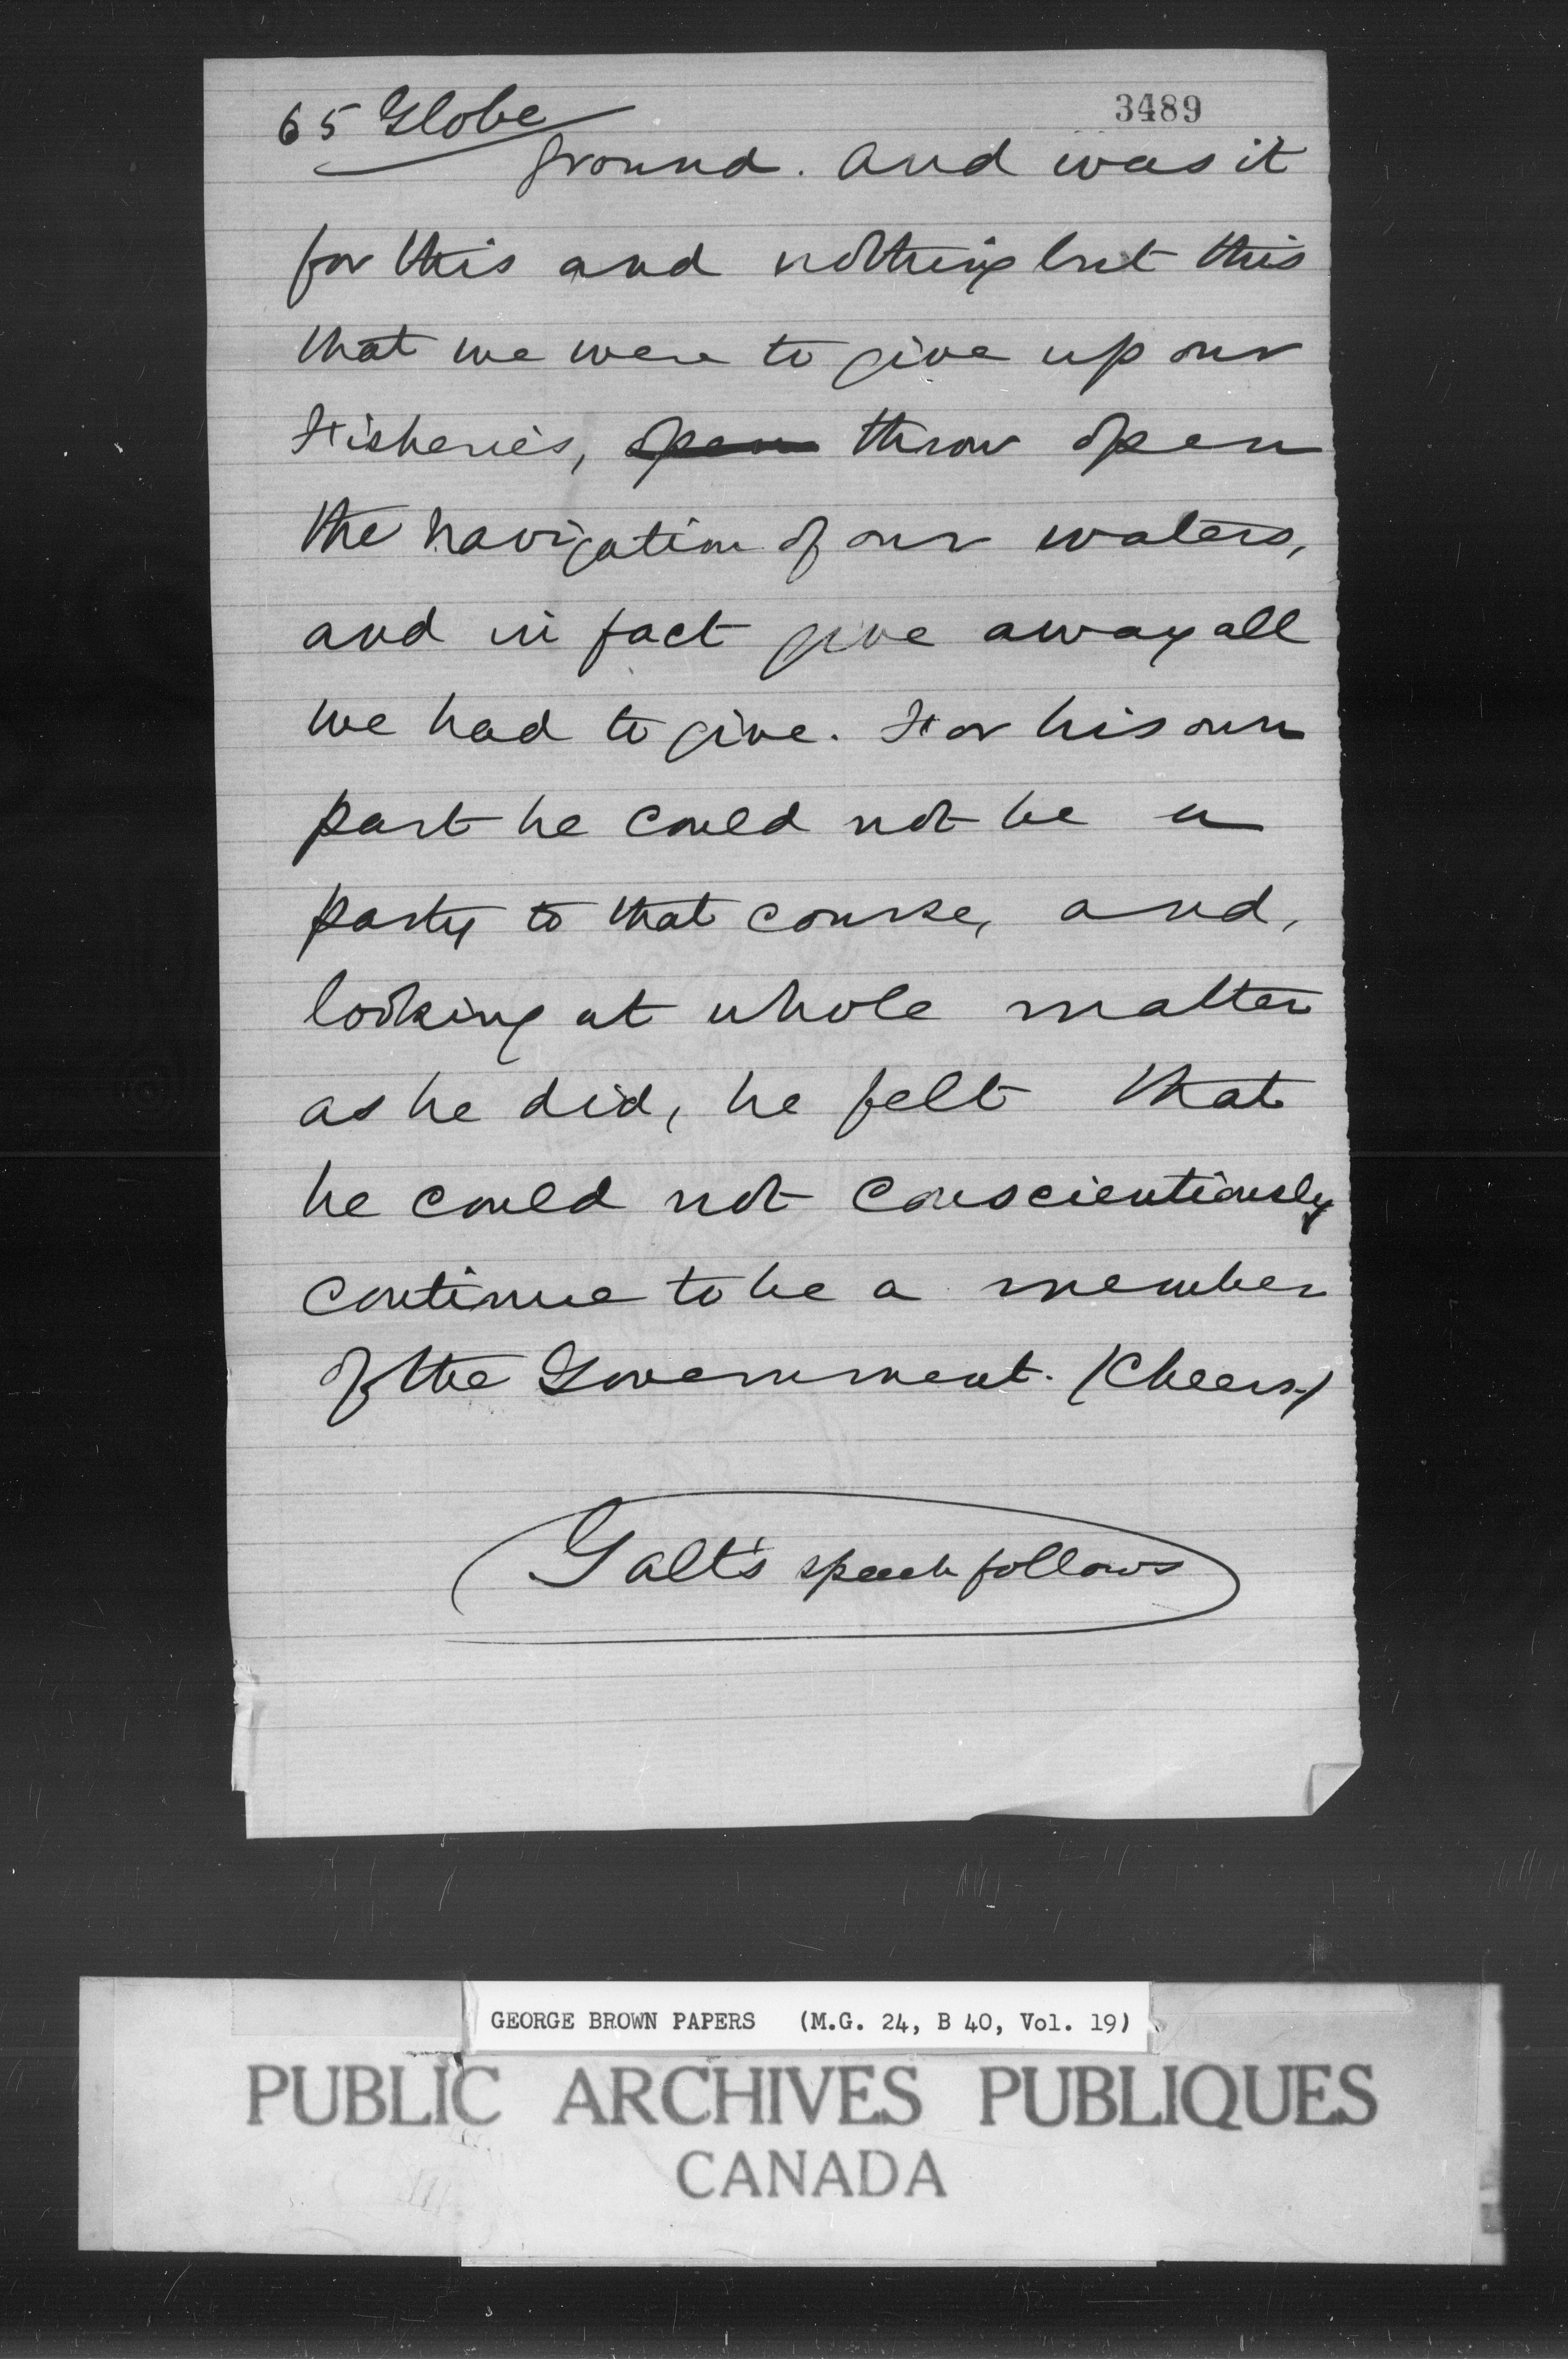 65 Globe
3489
ground. And was it
for this and nothing but this
that we were to give up our
Fisheries, open throw open
the navigation of our waters,
and in fact give away all
we had to give. For his own
part he could not be a
party to that course, and,
looking at whole matter
as he did, he felt that
he could not conscientiously
continue to be a member
of the Government. (Cheers.)
Galt's speech follows
GEORGE BROWN PAPERS (M.G. 24, B 40, Vol. 19)
PUBLIC ARCHIVES PUBLIQUES
CANADA